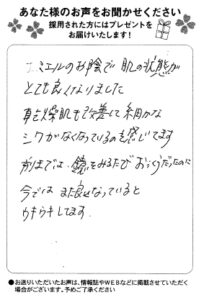 あなた様のお声をお聞かせください
採用された方にはプレゼントを
お届けいたします!
エミエルのお陰で肌の状態が
とても良くなりました
乾燥肌も改善して細かな
シワがなくなっているのを感じてます
前までは、鏡をみるたびおっくうだったのに
今では また良くなっていると
ウキウキしてます.
●お送りいただいたお声は、情報誌やWEBなどに掲載させていただく
場合がございます。予めご了承ください